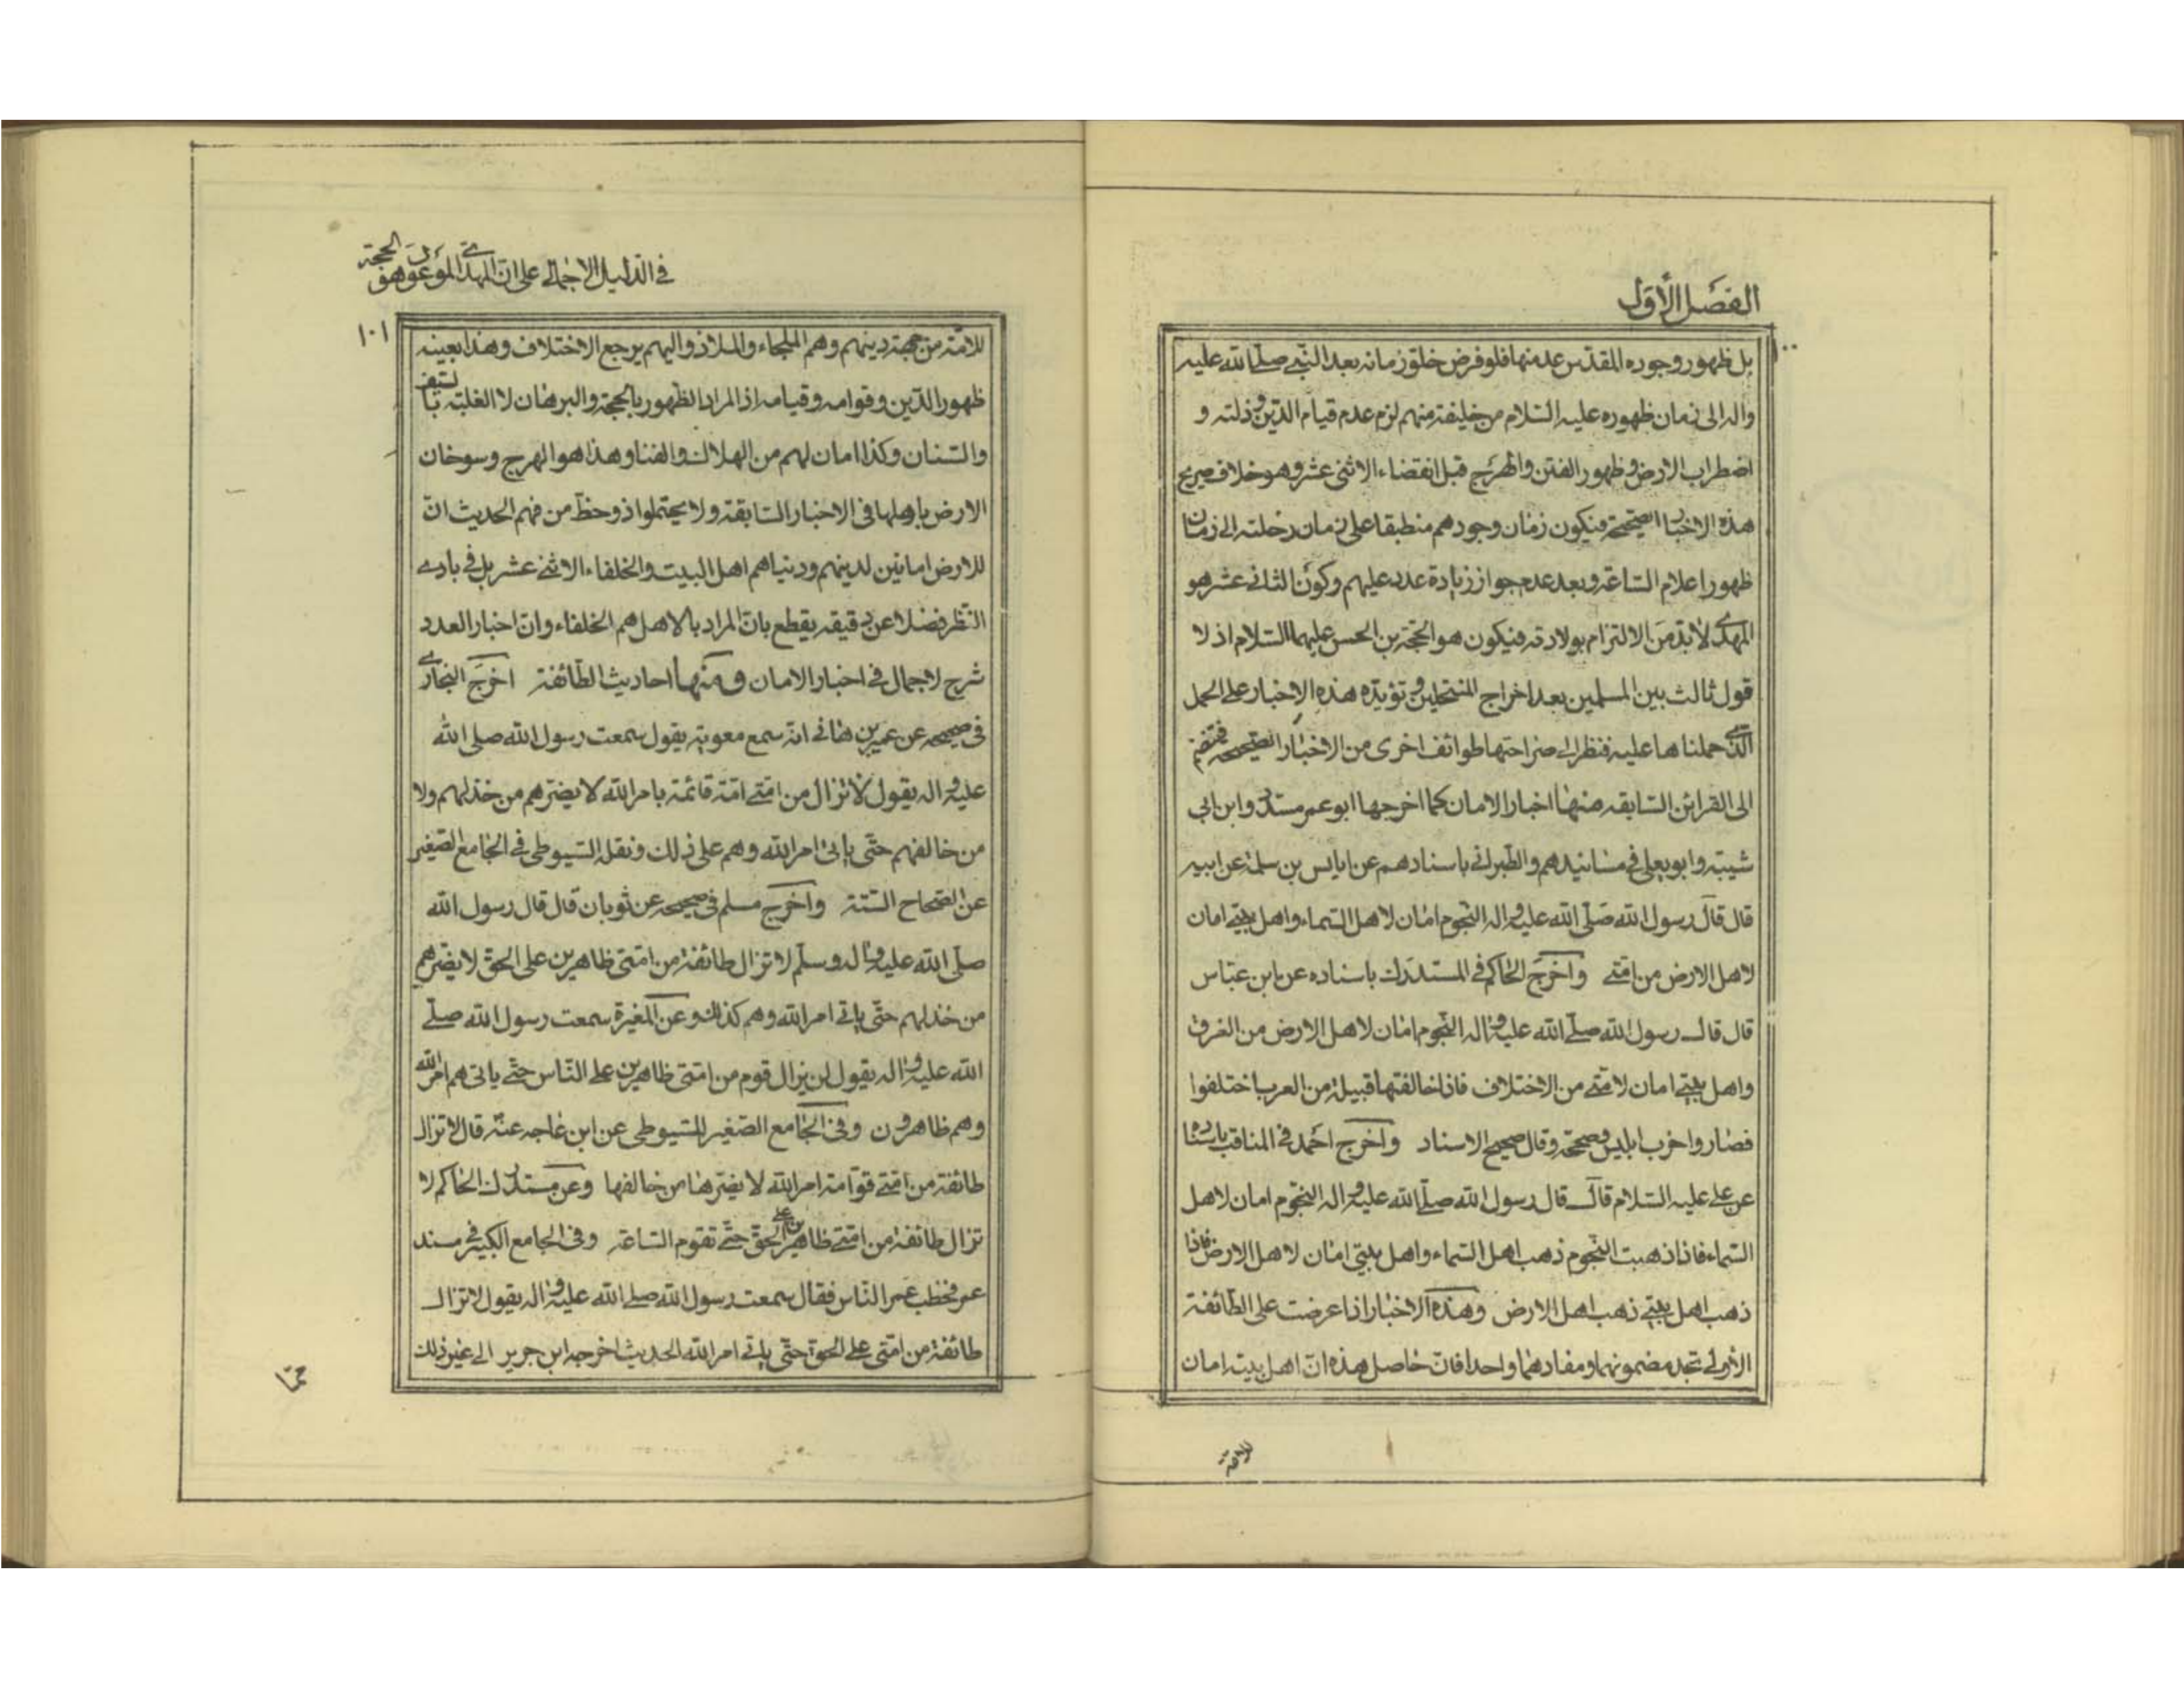 الفصل الأول
١٠٠
بل ظهور وجوده المقدس عد منها فلو فرض خلو زمانه بعد النبي صلى الله عليه
واله الى زمان ظهوره عليه السلام من خليفة منهم لزم عدم قيام الدين وذلته و
اضطراب الارض وظهور الفتن والهرج قبل انقضاء الاثنى عشر وهو خلاف صريح
هذه الاخبار الصحيحة فيكون زمان وجودهم منطبقا على زمان رحلته الى زمان
ظهور اعلام الساعة وبعد عدم جواز زيادة عدد عليهم وكون الثاني عشر هو
المهدي لا بد من الالتزام بولادته فيكون هو الحجة بن الحسن عليهما السلام اذ لا
قول ثالث بين المسلمين بعد اخراج المنتحلين وتؤيده هذه الاخبار على الحمل
الذي حملناها عليه فنظر الى صراحتها طوائف اخرى من الاخبار الصحيحة فتضم
الى القرائن السابقه منها اخبار الامان كما اخرجها ابو عمر مسدد وابن ابي
شيبة وابو يعلى في مسانيدهم والطبراني باسنادهم عن اياس بن سلمة عن ابيه
قال قال رسول الله صلى الله عليه واله النجوم امان لاهل السماء واهل بيتي امان
لاهل الارض من امتي واخرج الحاكم في المستدرك باسناده عن ابن عباس
قال قال رسول الله صلى الله عليه واله النجوم امان لاهل الارض من الغرق
واهل بيتي امان لامتي من الاختلاف فاذا خالفتها قبيلة من العرب اختلفوا
فصاروا حزب ابليس وصححه وقال صحيح الاسناد واخرج احمد في المناقب باسناده
عن علي عليه السلام قال قال رسول الله صلى الله عليه واله النجوم امان لاهل
السماء فاذا ذهبت النجوم ذهب اهل السماء واهل بيتي امان لاهل الارض فاذا
ذهب اهل بيتي ذهب اهل الارض وهذه الاخبار اذا عرضت على الطائفة
الأولى تجد مضمونهما ومفادهما واحدا فان حاصل هذه ان اهل بيته امان
للامة
في الدليل الاجمالي على ان المهدي الموعود هو الحجة
١٠١
للامة من جهة دينهم وهم الملجاء والملاذ واليهم يرجع الاختلاف وهذا بعينه
ظهور الدين وقوامه وقيامه اذ المراد الظهور بالحجة والبرهان لا الغلبة بالسيف
والسنان وكذا امان لهم من الهلاك والفنا وهذا هو الهرج وسوخان
الارض باهلها في الاخبار السابقة ولا يحتمل ذو حظ من فهم الحديث ان
للارض امانين لدينهم ودنياهم اهل البيت والخلفاء الاثني عشر بل في بادي
النظر فضلا عن دقيقه يقطع بان المراد بالاهل هم الخلفاء وان اخبار العدد
شرح لاجمال في اخبار الامان ومنها احاديث الطائفة اخرج البخاري
في صحيحه عن عمير بن هاني انه سمع معوية يقول سمعت رسول الله صلى الله
عليه واله يقول لا تزال من امتي امة قائمة بامر الله لا يضرهم من خذلهم ولا
من خالفهم حتى ياتى امر الله وهم على ذلك ونقله السيوطى في الجامع الصغير
عن الصحاح الستة واخرج مسلم في صحيحه عن ثوبان قال قال رسول الله
صلى الله عليه واله وسلم لا تزال طائفة من امتى ظاهرين على الحق لا يضرهم
من خذلهم حتى ياتي امر الله وهم كذلك وعن المغيرة سمعت رسول الله صلى
الله عليه واله يقول لن يزال قوم من امتى ظاهرين على الناس حتى ياتى هم امر الله
وهم ظاهرون وفي الجامع الصغير للسيوطى عن ابن ماجه عنه قال لا تزال
طائفة من امتي قوامة امر الله لا يضرها من خالفها وعن مستدرك الحاكم لا
تزال طائفة من امتي ظاهرين على الحق حتى تقوم الساعة وفي الجامع الكبير في مسند
عمر فخطب عمر الناس فقال سمعت رسول الله صلى الله عليه واله يقول لا تزال
طائفة من امتى على الحق حتى ياتي امر الله الحديث اخرجه ابن جرير الى غير ذلك
مما